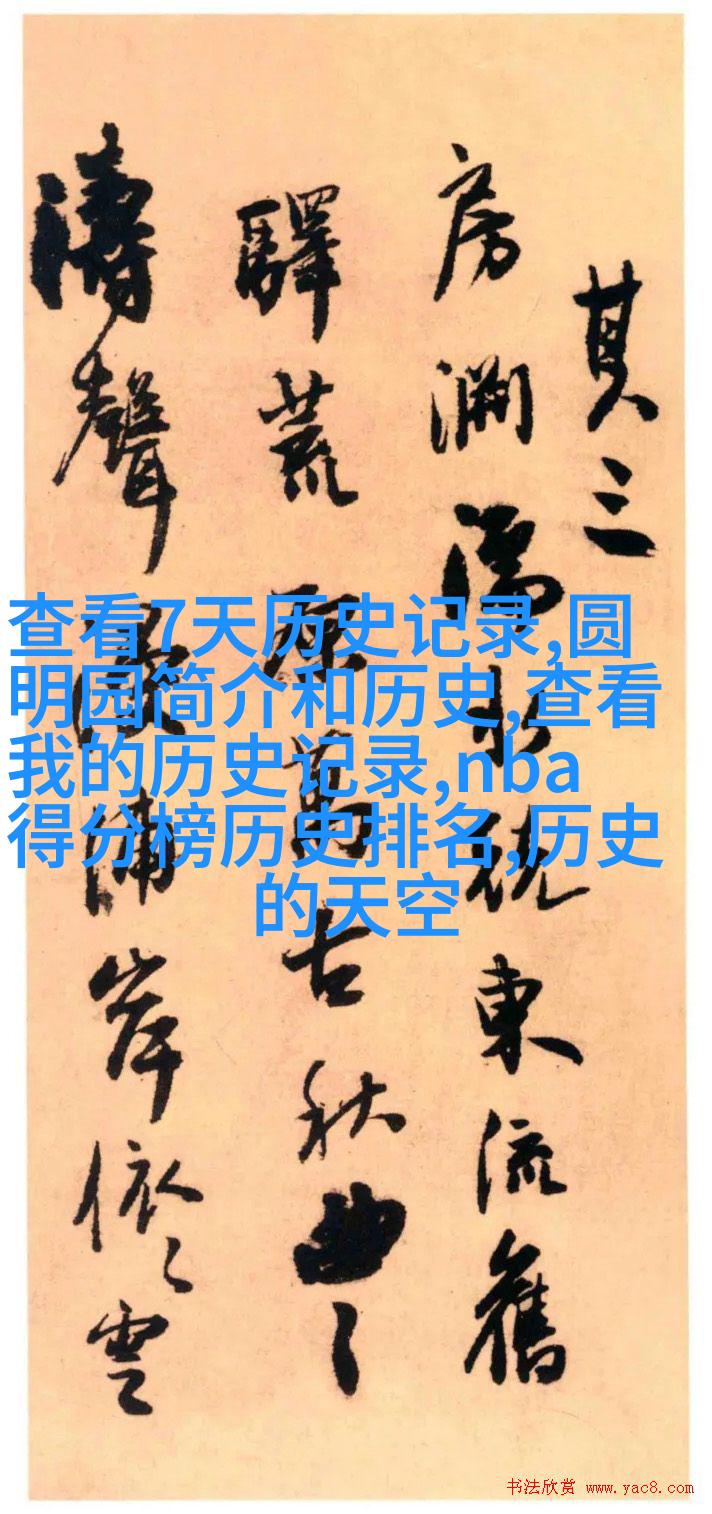 其三
房淵水東流舊
驛荒原萬古秋曲〻
濤聲浦岸依〻雲
查看7天历史记录,圆
明园简介和历史,查看
我的历史记录,nba
得分榜历史排名,历史
的天空
书法欣赏 www.yac8.com